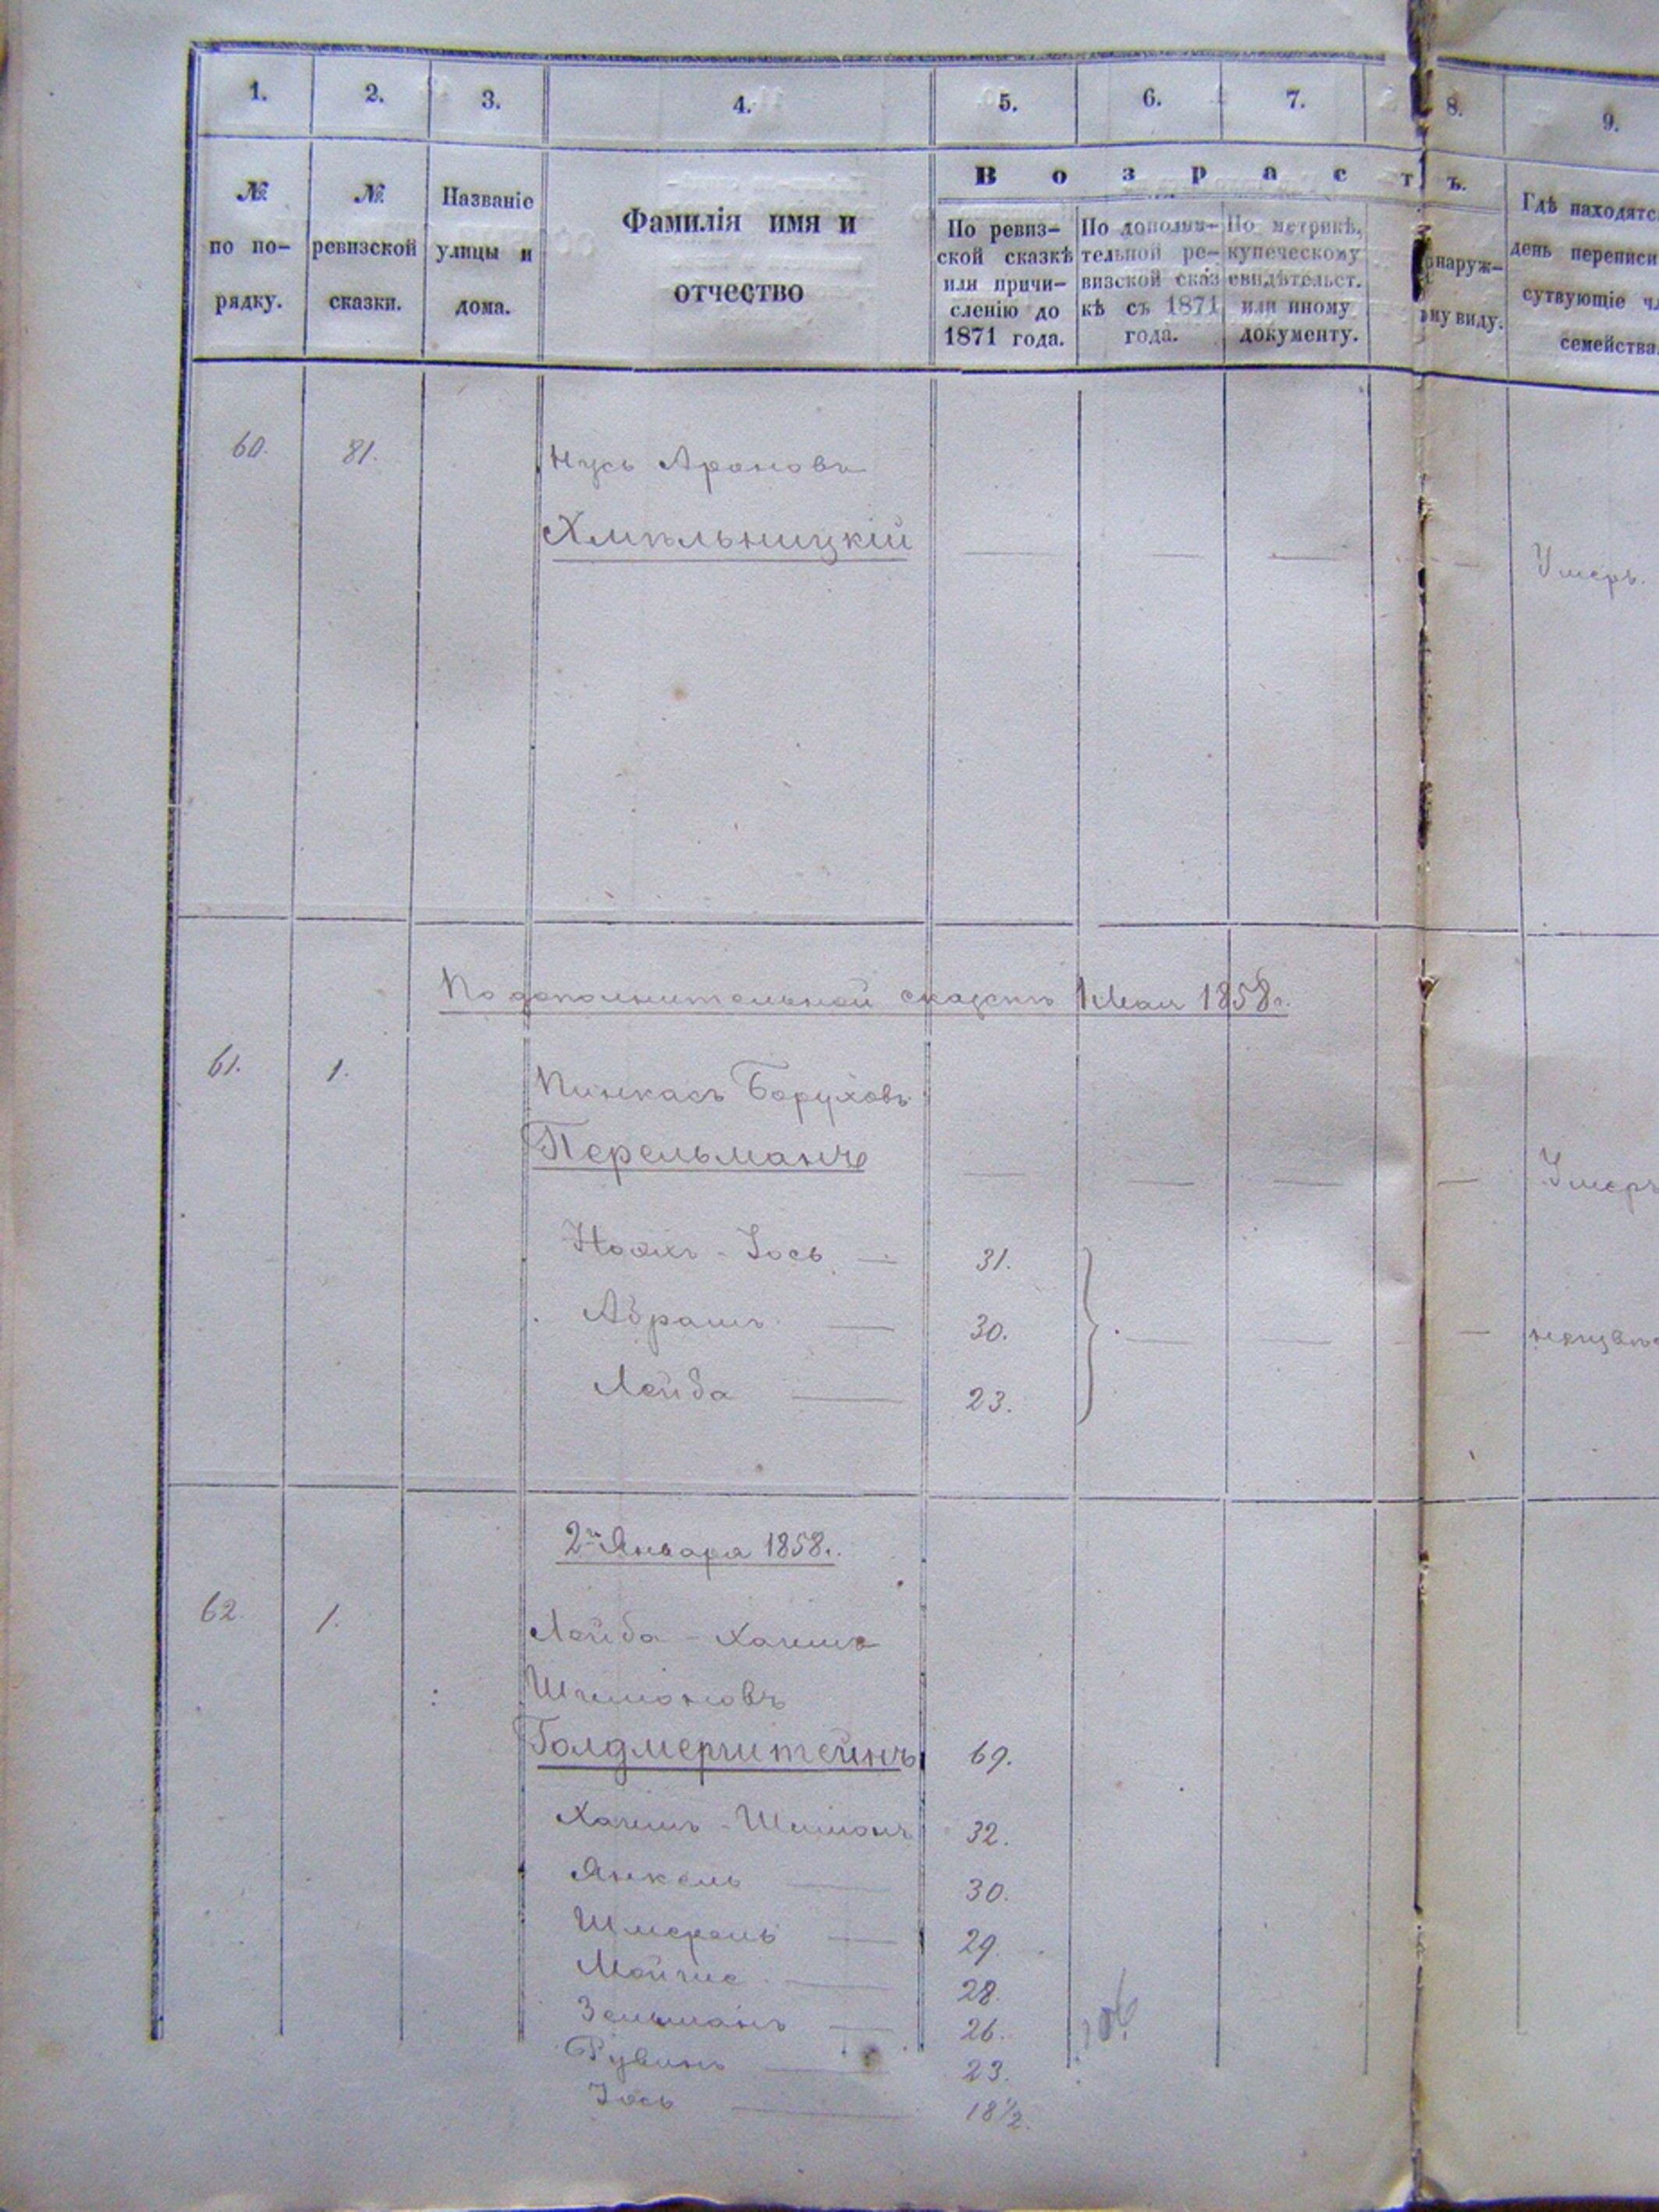 1. 2. 3. 4. 5. 6. 7. 8. 9.
№ по по-рядку.
№ ревизской сказки.
Названіе улицы и дома.
Фамилія имя и отчество
Возрастъ.
По ревиз-ской сказкѣ или причи-сленію до 1871 года.
По дополни-тельной ре-визской сказ кѣ съ 1871 года.
По метрикѣ, купеческому свидѣтельст. или иному документу.
наруж-ному виду.
Гдѣ находятс
день переписи
сутвующіе чл
семейства.
60. 81. Нусь Ароновъ
Хмѣльницкій — — — — Умеръ.
По дополнительной сказкѣ 1 Мая 1858 г.
61. 1. Пинкасъ Боруховъ
Перельманъ — — — — Умеръ
Ноахъ - Іось — 31.
Абрамъ — 30. — — —
Лейба — 23.
2й Января 1858 г.
62. 1. Лейба - Хаимъ
Шимоновъ
Голдмерштейнъ 69.
Хаимъ - Шимонъ 32.
Янкель — 30.
Шмерель — 29.
Мойше — 28.
Зельманъ — 26.
Рувинъ — 23.
Іось — 18 1/2.